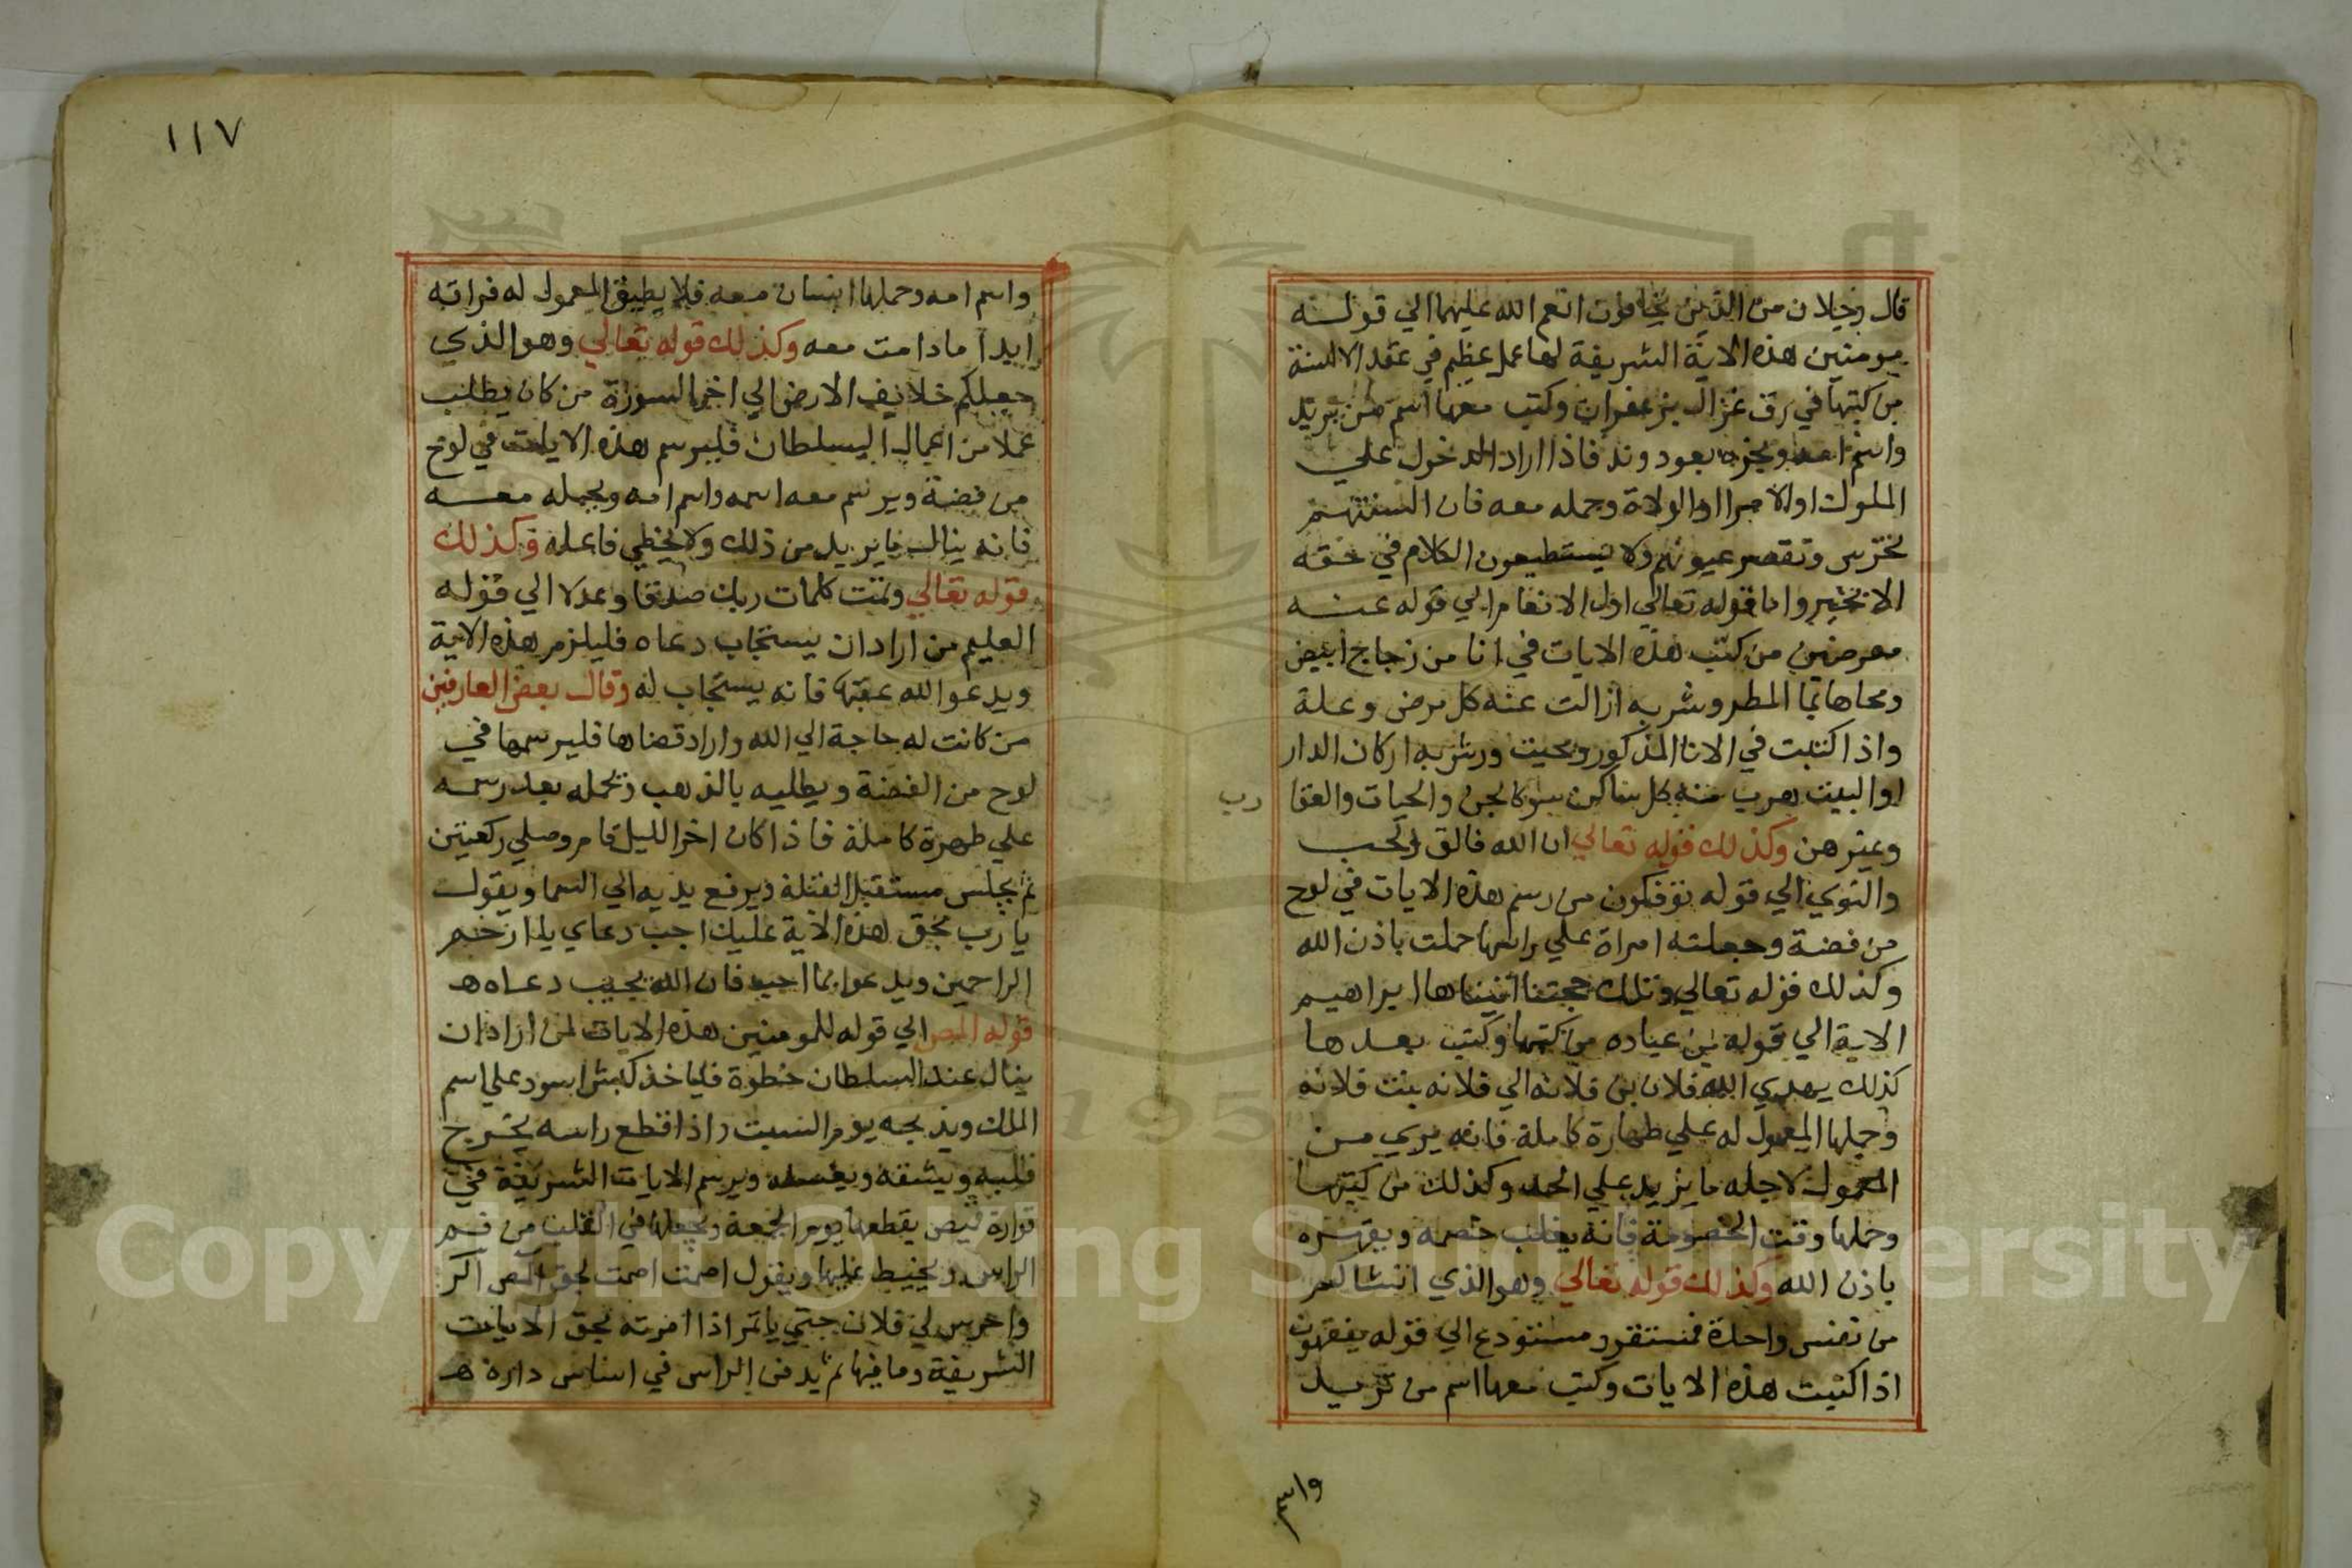 قال رجلان من الذين يخافون انعم الله عليهما الي قولـه
مومنين هذه الاية الشريفة لها عمل عظيم في عقد الالسنة
من كتبها في رق غزال بزعفران وكتب معها اسم من يريد
واسم امه وبخره بعود وند فاذا اراد الدخول علي
الملوك او الامرا او الولاة وحمله معه فان السنتهـم
تخرس وتقصر عيونهم ولا يستطيعون الكلام في حقه
الا بخير واما قوله تعالي اول الانعام الي قوله عنـه
معرضين من كتب هذه الايات في انا من زجاج ابيض
ومحاها بما المطر وشربه ازالت عنه كل مرض وعلة
واذا كتبت في الانا المذكور ومحيت ورش به اركان الدار
او البيت هرب منه كل ساكن سوكالجن والحيات والعقا
رب
وغير هن وكذلك قوله تعالي ان الله فالق الحب
والنوي الي قوله توفكون من رسم هذه الايات في لوح
من فضة وجعلته امراة علي راسها حملت باذن الله
وكذلك قوله تعالي وتلك حجتنا اتيناها ابراهيم
الاية الي قوله من عباده من كتبها وكتب بعدها
كذلك يهدي الله فلان بن فلانه الي فلانه بنت فلانه
وحملها المعمول له علي طهارة كاملة فانه يري مـن
المعمول لاجله ما يزيد علي الحد وكذلك من كتبها
وحملها وقت الخصومة فانه يغلب خصمه ويقهـره
باذن الله وكذلك قوله تعالي وهو الذي انشاكم
من نفس واحدة فمستقر ومستودع الي قوله يفقهون
اذا كتبت هذه الايات وكتب معها اسم من تريـد
واسم
١١٧
واسم امه وحملها انسان معه فلا يطيق المعمول له فراقه
ابدا ما دامت معه وكذلك قوله تعالي وهو الذي
جعلكم خلايف الارض الي اخر السورة من كان يطلب
عملا من اعمال السلطان فليرسم هذه الايات في لوح
من فضة ويرسم معه اسمه واسم امه ويحمله معـه
فانه ينال ما يريد من ذلك ولا يخطي فاعله وكذلك
قوله تعالي وتمت كلمات ربك صدقا وعدلا الي قوله
العليم من اراد ان يستجاب دعاه فليلزم هذه الاية
ويدعوا الله عقبها فانه يستجاب له وقال بعض العارفين
من كانت له حاجة الي الله واراد قضاها فليرسمها في
لوح من الفضة ويطليه بالذهب وتحمله بعد رسمـه
علي طهرة كاملة فاذا كان اخر الليل قام وصلي ركعتين
ثم يجلس مستقبل القبلة ويرفع يديه الي السما ويقول
يا رب بحق هذه الاية عليك اجب دعاي يا ارحم
الراحمين ويدعوا بما احب فان الله يجيب دعـاه هـ
قوله المص الي قوله للمومنين هذه الايات لمن اراد ان
ينال عند السلطان حظوة فلياخذ كبش اسود علي اسم
الملك ويذبحه يوم السبت واذا قطع راسه يخـرج
قلبه ويشقه ويغسله ويرسم الايات الشريفة في
قوارة قميص يقطعها يوم الجمعة ويجعلها في القلب من فـم
الراس ويخيط عليها ويقول اصمت اصمت بحق المص الر
واخرس لي فلان حتي ياتمر اذا امرته بحق الايات
الشريفة وما فيها ثم يدفن الراس في اساس داره هـ